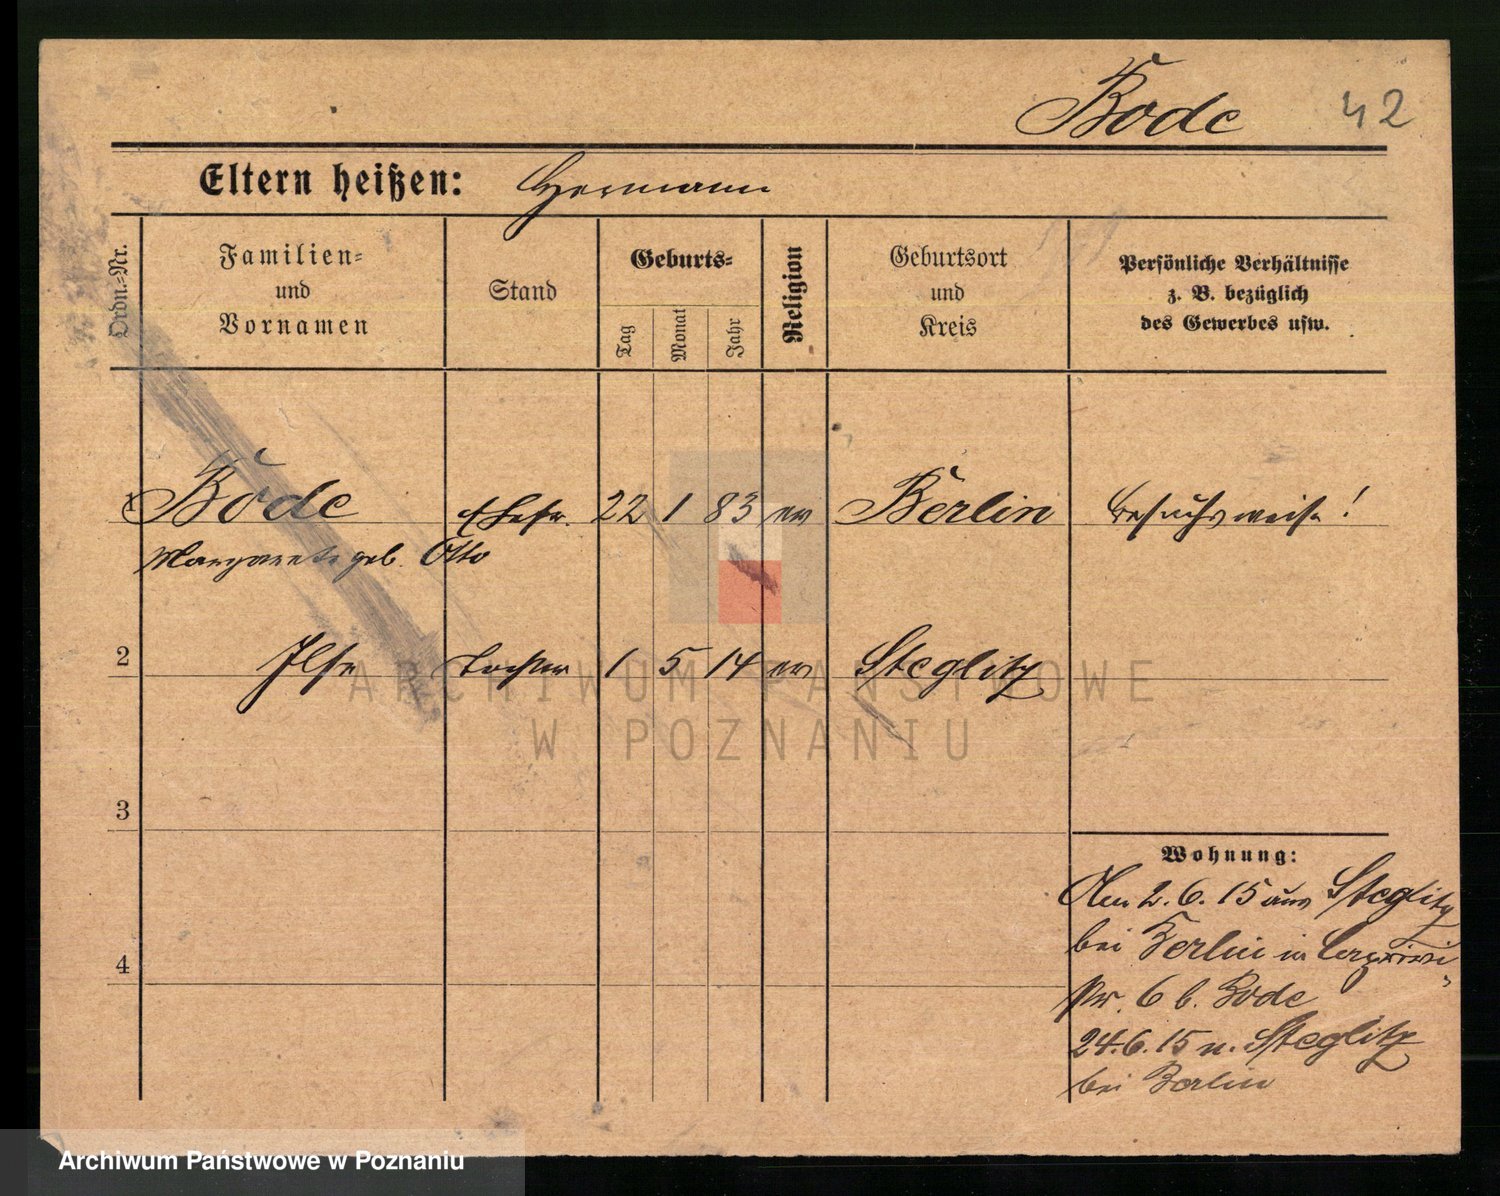 Bode 42
Eltern heißen: Hermann
Ordn.=Nr.
Familien=
und
Vornamen
Stand
Geburts=
Tag
Monat
Jahr
Religion
Geburtsort
und
Kreis
Persönliche Verhältnisse
z. B. bezüglich
des Gewerbes usw.
1 Bode Ehefr. 22 1 83 ev Berlin besuchsweise!
Margarete geb. Otto
2 Ilse Tochter 1 5 14 ev Steglitz
3
4
Wohnung:
Am 2. 6. 15 aus Steglitz
bei Berlin in
6 b. Bode
24.6.15 n. Steglitz
bei Berlin
ARCHIWUM PAŃSTWOWE
W POZNANIU
Archiwum Państwowe w Poznaniu